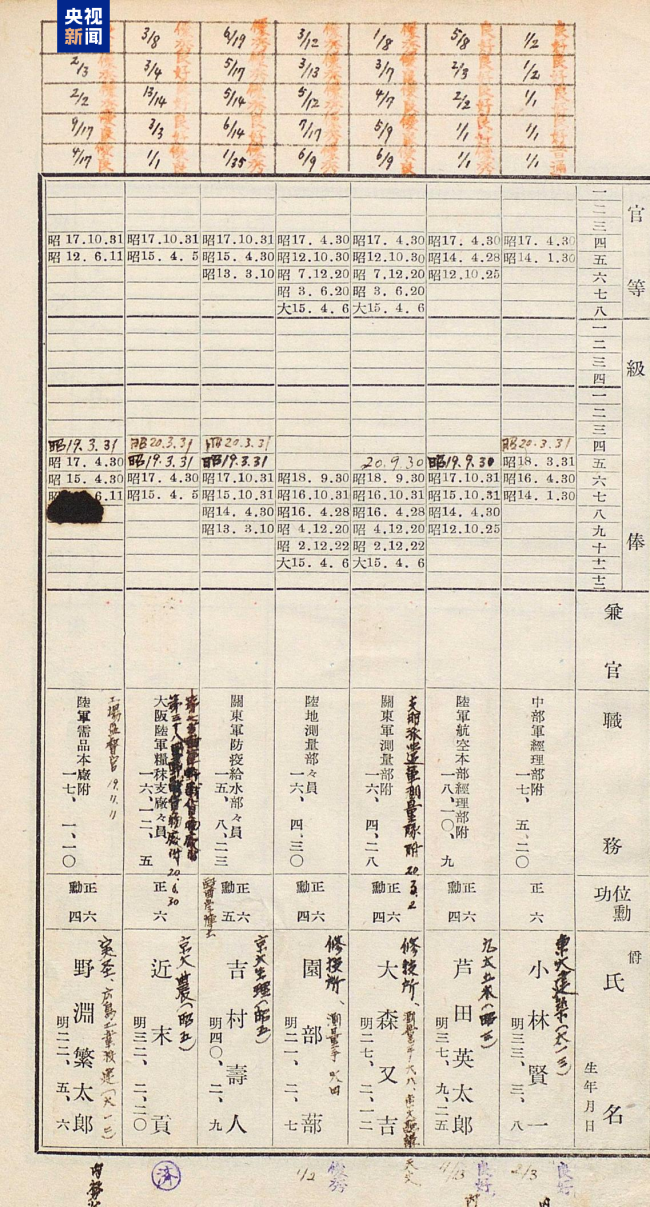 央视
新闻
官等
級俸
兼官
職務
位勲功
爵
氏名
生年月日
一
二
三
四
五
六
七
八
一
二
三
四
一
二
三
四
五
六
七
八
九
十
十一
十二
1/2 良好
1/2 良好
1/1 良好
1/1 良好
1/1 普通
昭17.4.30
昭14.1.30
昭20.3.31
昭18.3.31
昭16.4.30
昭14.1.30
中部軍經理部附
一七、五、二〇
正六
小林賢一
明三三、三、八
東大建築(大一三)
5/8 良好
2/3 良好
2/2 良好
1/1 良好
1/1 優秀
昭17.4.30
昭14.4.28
昭12.10.25
昭19.9.30
昭17.10.31
昭15.10.31
昭14.4.30
昭12.10.25
陸軍航空本部經理部附
一八、一〇、九
正六
勲四
芦田英太郎
明三七、九、二五
九大土木(昭三)
1/8 優秀
3/7 優良
4/7 優良
5/9 優良
6/9 優良
昭17.4.30
昭12.10.30
昭7.12.20
昭3.6.20
大15.4.6
20.9.30
昭18.9.30
昭16.10.31
昭16.4.28
昭4.12.20
昭2.12.22
大15.4.6
關東軍測量部附
一六、四、二八
正六
勲四
大森又吉
明二七、二、一二
修技所
3/12 優秀
3/13 優秀
5/12 優秀
7/17 優秀
6/9 優秀
昭17.4.30
昭12.10.30
昭7.12.20
昭3.6.20
大15.4.6
昭18.9.30
昭16.10.31
昭16.4.28
昭4.12.20
昭2.12.22
大15.4.6
陸地測量部々員
一六、四、三〇
正六
勲四
園部蔀
明二一、二、七
修技所
6/19 優秀
5/17 優秀
5/14 優秀
6/14 優秀
1/35 優秀
昭17.10.31
昭15.4.30
昭13.3.10
昭20.3.31
昭19.3.31
昭17.10.31
昭15.10.31
昭14.4.30
昭13.3.10
關東軍防疫給水部々員
一五、八、二三
正六
勲五
醫學博士
吉村壽人
明四〇、二、九
京大生理(昭五)
3/8 優秀
3/4 良好
13/14 良好
3/3 優良
1/1 優良
昭17.10.31
昭15.4.5
昭20.3.31
昭19.3.31
昭17.4.30
昭15.4.5
大阪陸軍糧秣支廠々員
一六、一二、五
20.6.30
正六
近末貢
明三二、二、二〇
京大農(昭五)
2/3
2/2
9/17 優良
4/17 優良
昭17.10.31
昭12.6.11
昭19.3.31
昭17.4.30
昭15.4.30
6.11
陸軍需品本廠附
一七、一、一〇
工場監督官 19.11.11
正六
勲四
野淵繁太郎
明二二、五、六
2/3 良好
良好
1/2 優秀
済